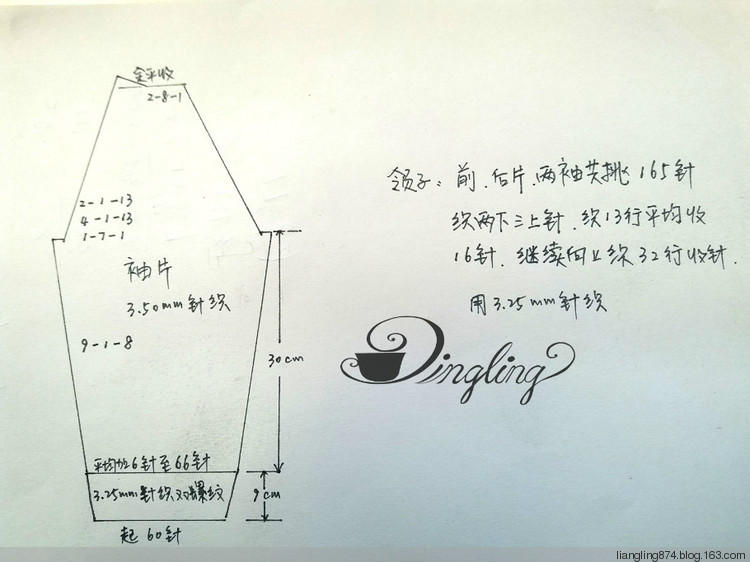 全平收
2-8-1
2-1-13
4-1-13
1-7-1
袖片
3.50mm针织
9-1-8
30cm
平均加6针至66针
3.25mm针织双螺纹
9cm
起60针
领子：前、后片、两袖共挑165针
织两下三上针、织13行平均收
16针、继续向上织32行收针.
用3.25mm针织
Dingling
liangling874.blog.163.com